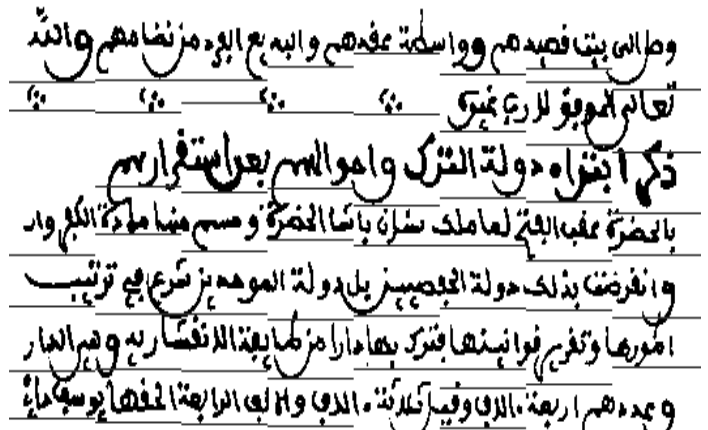 وطالى بيت فصيدهم وواسطة عفدهم والبديع البرد من نضامهم والله
تعالى الموفق لا رب غيره
ذكر ابتداء دولة الترك واحوالهم بعد استفرارهم
بالحضرة عفب الفتح لما ملك سنان باشا الحضرة وحسم منها مادة الكفر وار
وانفرضت بذلك دولة الحفصيين بل دولة الموحدين شرع في ترتيب
امورها وتفرير فوانينها فترك بها دارا من طايفة الانفشارية وهي الدار
وعددهم اربعة الاف وفيل ثلاثة الاف والالف الرابعة الحفها يوسف داي